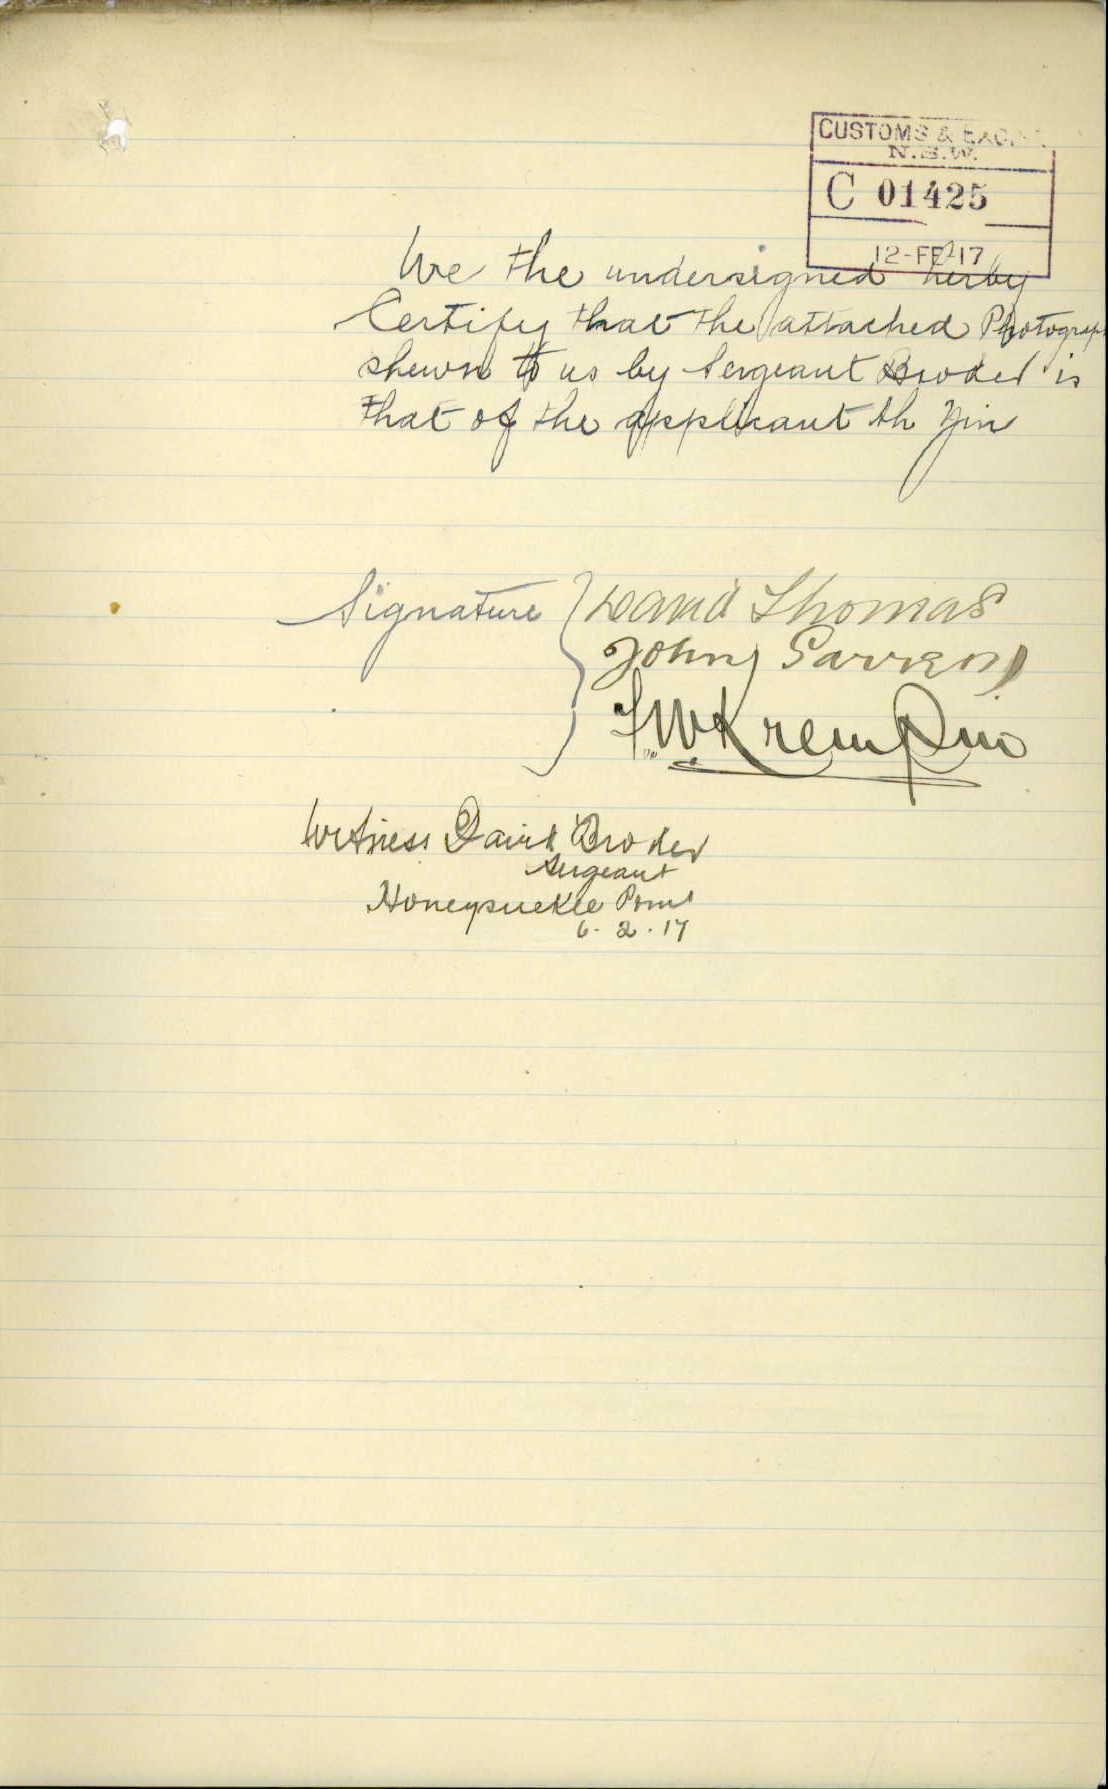 CUSTOMS & EXC
N.S.W.
C 01425
12-FE 17
We the undersigned herby
Certify that the attached Photograph
shewn to us by Sergeant Broder is
that of the applicant Ah Yin
Signature David Thomas
John
F.W. Krempin
Witness David Broder
Sergeant
Honeysuckle Point
6.2.17